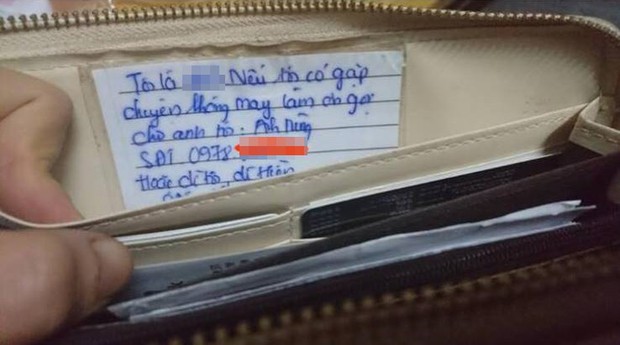 Tôi là Nếu tôi có gặp
chuyện không may làm ơn gọi
cho anh tôi: Anh Dũng
SĐT 0978
Hoặc dì tôi, dì Hiền